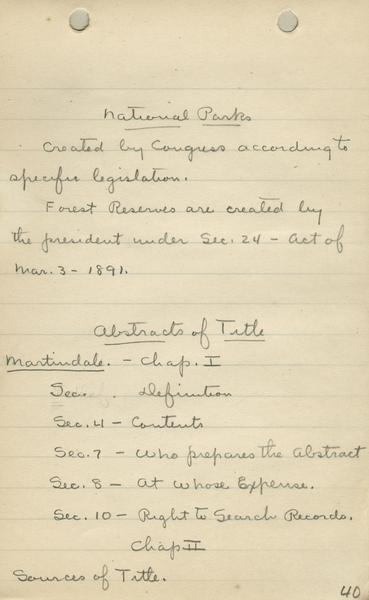 National Parks
Created by Congress according to
specific legislation.
Forest Reserves are created by
the president under Sec. 24 - Act of
Mar. 3 - 1891.
Abstracts of Title
Martindale. - Chap. I
Sec. . Definition
Sec. 4 - Contents
Sec. 7 - Who prepares the Abstract
Sec. 8 - At Whose Expense.
Sec. 10 - Right to Search Records.
Chap II
Sources of Title.
40